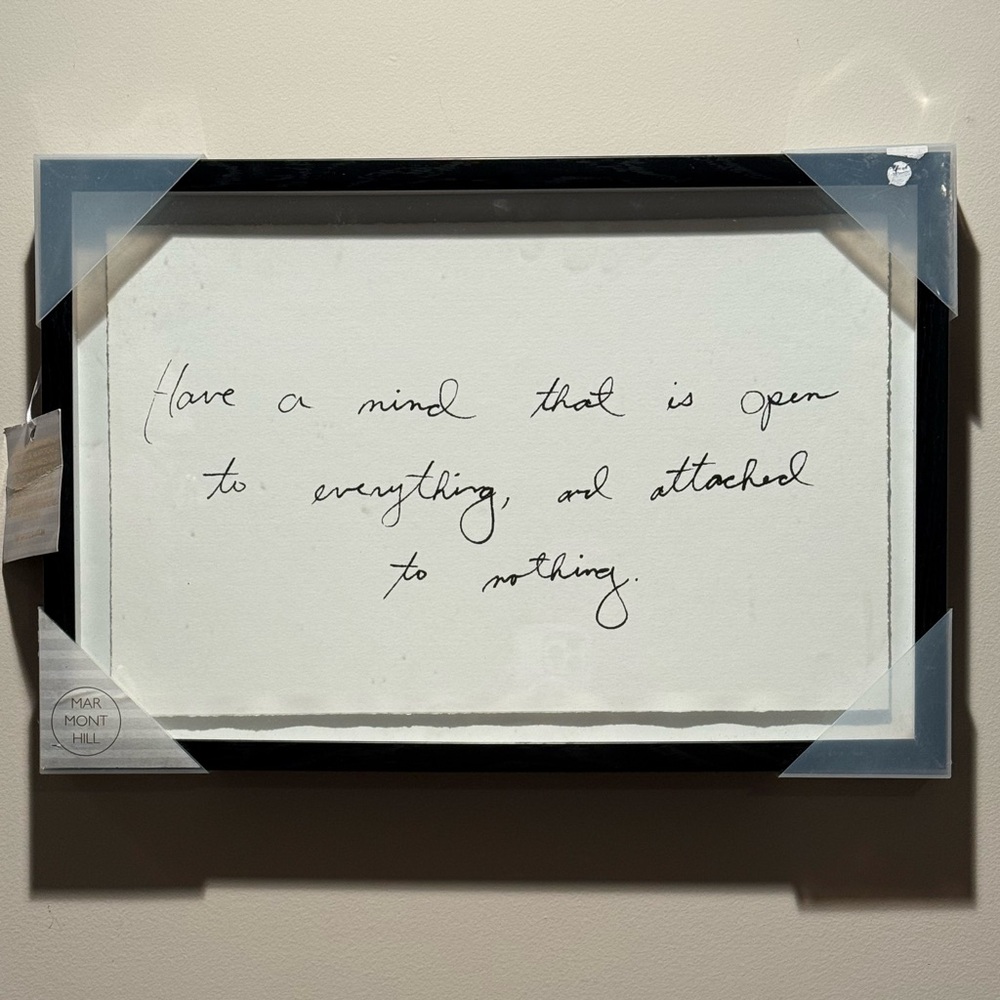 Have a mind that is open
to everything, and attached
to nothing.
MAR
MONT
HILL